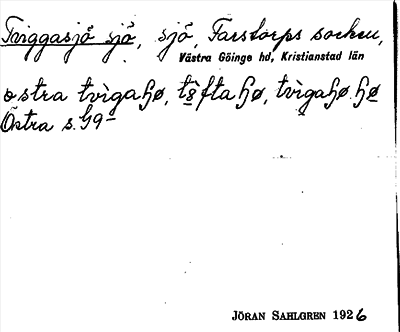 Tviggasjö sjö, sjö, Farstorps socken,
Västra Göinge hd, Kristianstad län
östra tvìgahø, tı̀ftahø, tvìgahø hø
Östra s. 49
JÖRAN SAHLGREN 1926